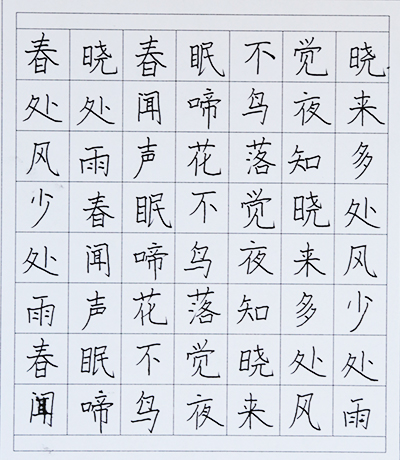 春晓春眠不觉晓
处处闻啼鸟夜来
风雨声花落知多
少春眠不觉晓处
处闻啼鸟夜来风
雨声花落知多少
春眠不觉晓处处
闻啼鸟夜来风雨